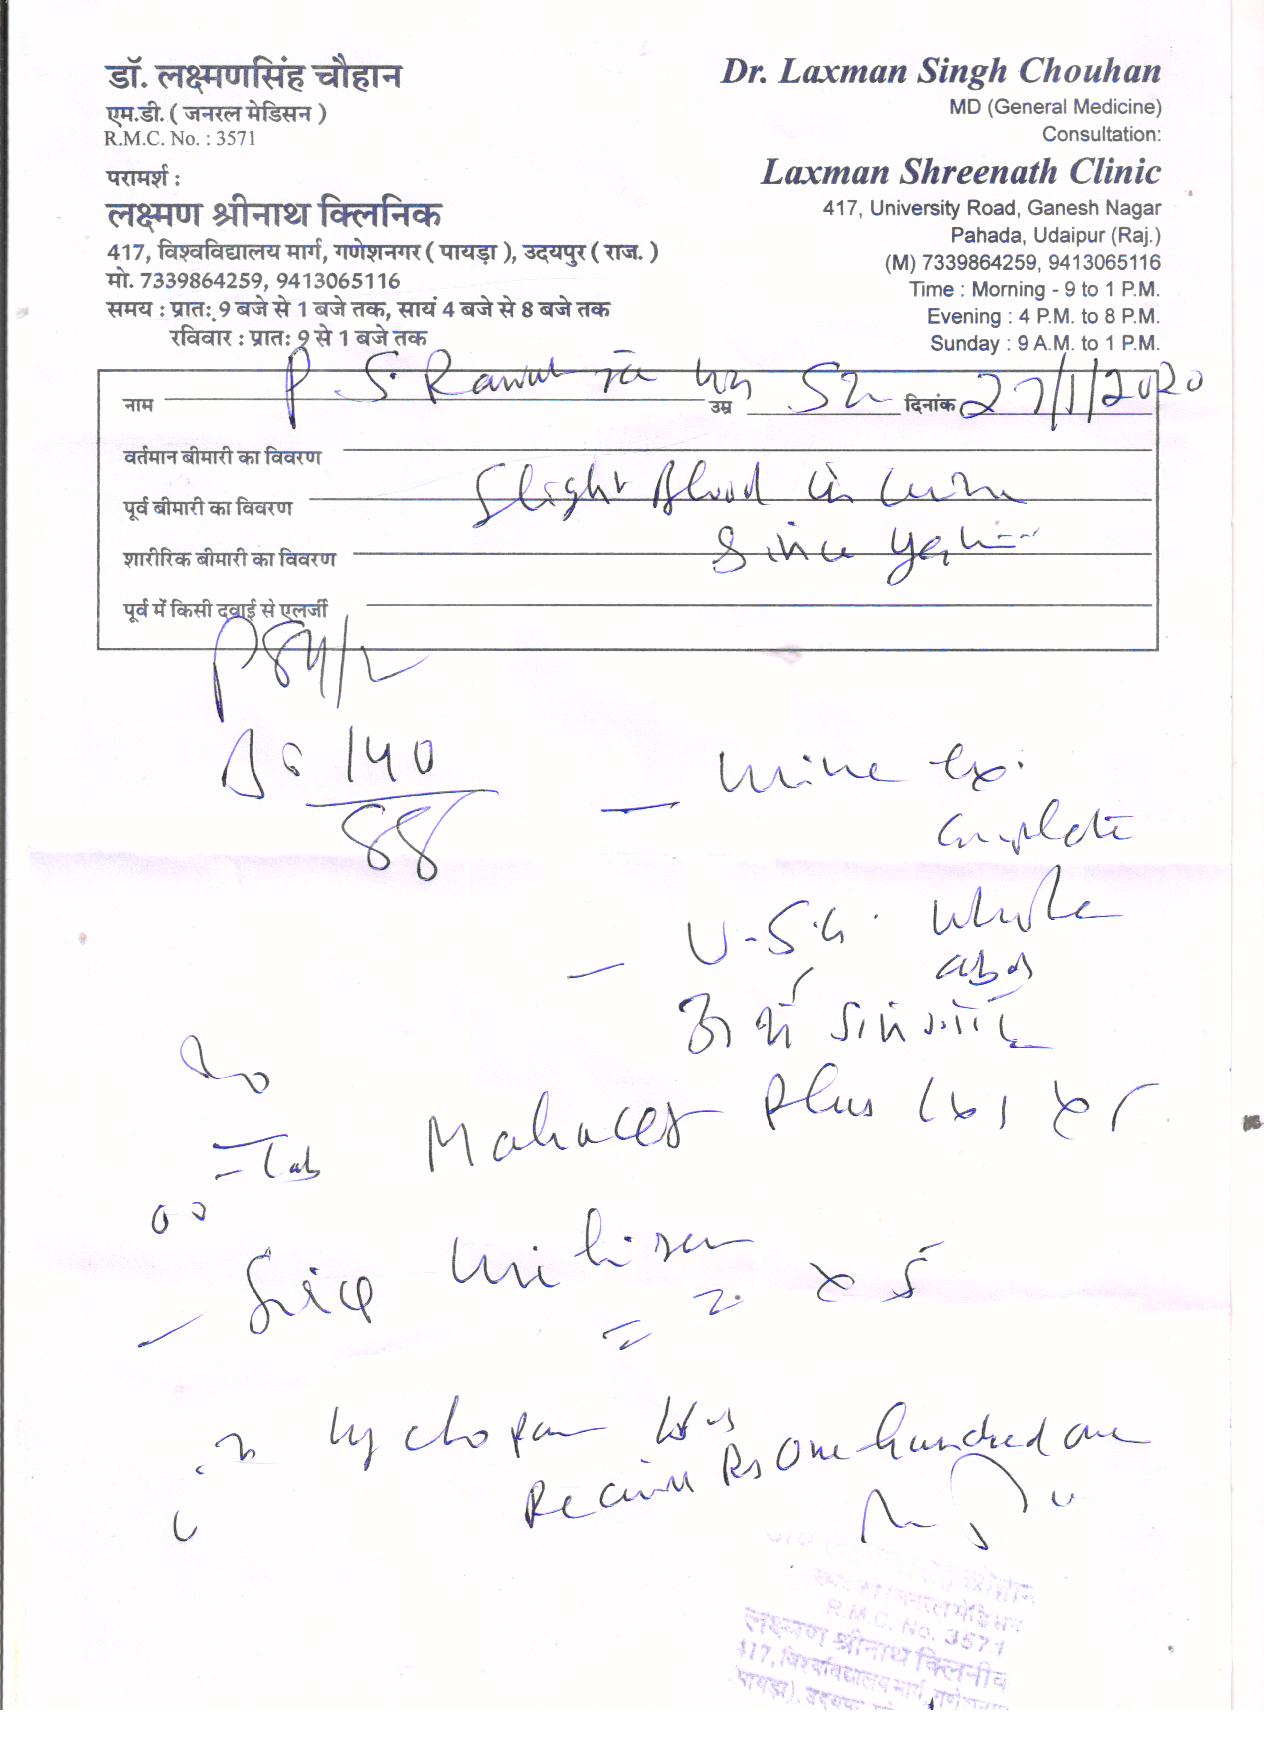 डॉ. लक्ष्मणसिंह चौहान
एम.डी. ( जनरल मेडिसन )
R.M.C. No. : 3571
परामर्श :
लक्ष्मण श्रीनाथ क्लिनिक
417, विश्वविद्यालय मार्ग, गणेशनगर ( पायड़ा ), उदयपुर ( राज. )
मो. 7339864259, 9413065116
समय : प्रातः 9 बजे से 1 बजे तक, सायं 4 बजे से 8 बजे तक
रविवार : प्रातः 9 से 1 बजे तक
Dr. Laxman Singh Chouhan
MD (General Medicine)
Consultation:
Laxman Shreenath Clinic
417, University Road, Ganesh Nagar
Pahada, Udaipur (Raj.)
(M) 7339864259, 9413065116
Time : Morning - 9 to 1 P.M.
Evening : 4 P.M. to 8 P.M.
Sunday : 9 A.M. to 1 P.M.
नाम P S. Rawat उम्र 52 दिनांक 27/1/2020
वर्तमान बीमारी का विवरण
पूर्व बीमारी का विवरण Slight Blood in urine
शारीरिक बीमारी का विवरण Since
पूर्व में किसी दवाई से एलर्जी
P 84/
140
88
- Urine Ex.
Complete
- U.S.G. Whole
abd
- Tab Mahacef Plus 1 x 1 x 5
x 5
Rs One hundred one
R.M.C. No. 3571
लक्ष्मण श्रीनाथ क्लिनीक
417, विश्वविद्यालय मार्ग,